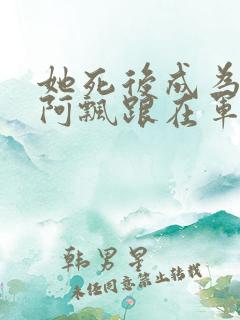 她死後成為
阿飄跟在軍
韩男星
未经同意禁止转载